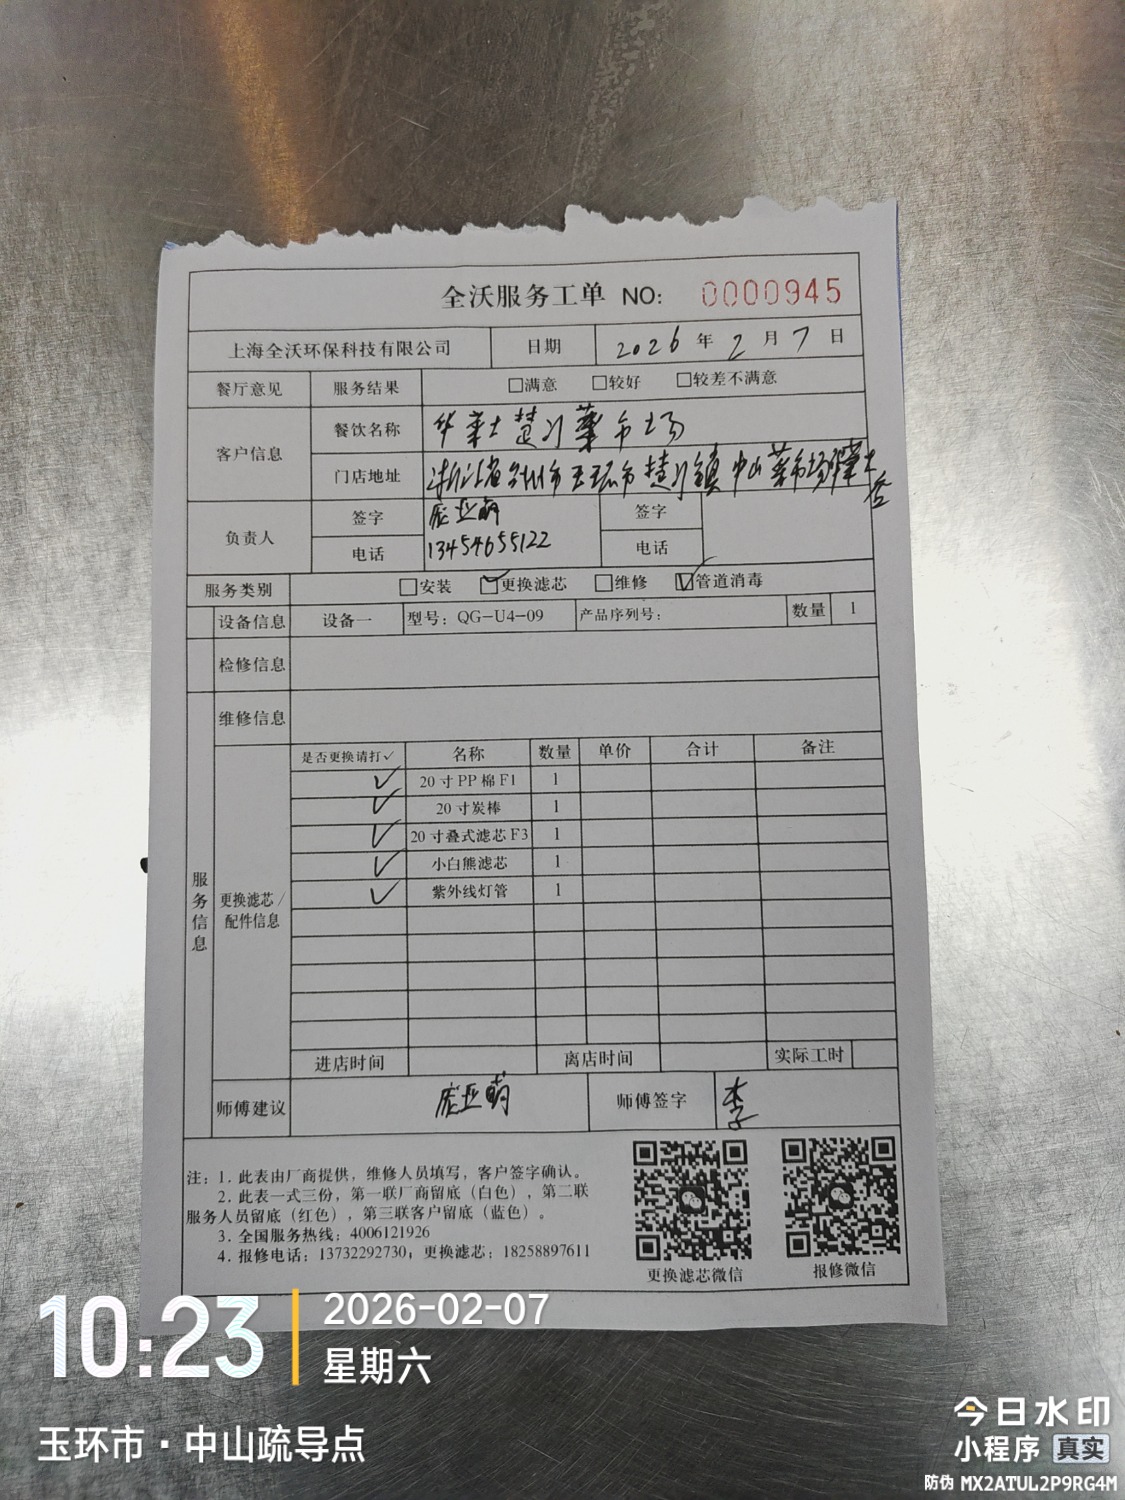 全沃服务工单 NO: 0000945
上海全沃环保科技有限公司 日期 2026 年 2 月 7 日
餐厅意见 服务结果 □满意 □较好 □较差不满意
客户信息 餐饮名称 华莱士楚门菜市场
门店地址 浙江省台州市玉环市楚门镇中山菜市场华莱士
负责人 签字 庞亚萌 签字
电话 13454655122 电话
服务类别 □安装 ☑更换滤芯 □维修 ☑管道消毒
设备信息 设备一 型号：QG-U4-09 产品序列号： 数量 1
检修信息
维修信息
服务信息
更换滤芯/配件信息
是否更换请打✓ 名称 数量 单价 合计 备注
✓ 20寸PP棉F1 1
✓ 20寸炭棒 1
✓ 20寸叠式滤芯F3 1
✓ 小白熊滤芯 1
✓ 紫外线灯管 1
进店时间 离店时间 实际工时
师傅建议 庞亚萌 师傅签字 李
注：1. 此表由厂商提供，维修人员填写，客户签字确认。
2. 此表一式三份，第一联厂商留底（白色），第二联
服务人员留底（红色），第三联客户留底（蓝色）。
3. 全国服务热线：4006121926
4. 报修电话：13732292730，更换滤芯：18258897611
更换滤芯微信 报修微信
10:23 2026-02-07
星期六
玉环市·中山疏导点
今日水印
小程序 真实
防伪 MX2ATUL2P9RG4M